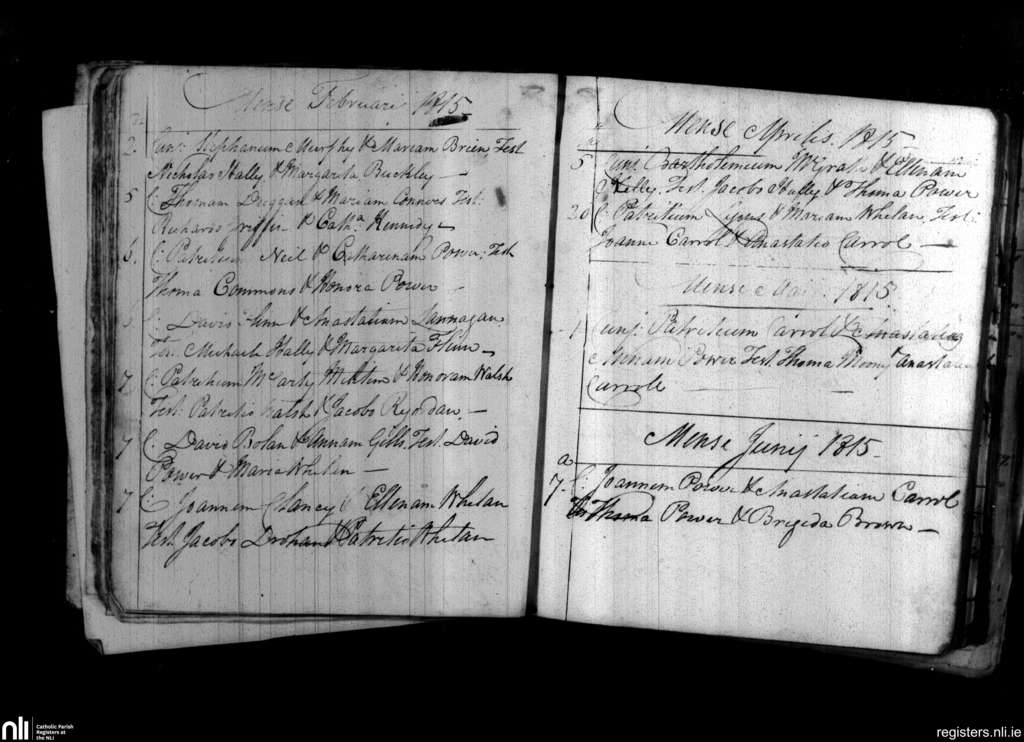 Mense Februari 1815
2 Cunj: Stephanum Murphy & Mariam Brien, Test
Nicholas Hally & Margarita Buckley —
5 C: Thomam Duggan & Mariam Connors Test:
Richardo Griffin & Catha Kennedy
6. C: Patritium Neil & Catharinam Power, Test
Thoma Commons & Honora Power —
C: David & Anastatiam Lannagan,
Test. Michaele Hally & Margarita Flinn —
7 C: Patritium McCarty & Honoram Walsh
Test. Patritio Walsh & Jacobo Ryordan. —
7 C: David Bolan & Annam Gills, Test. David
Power & Maria Whelan —
7 C Joannem Clancy & Ellenam Whelan
Test. Jacobo Drohan & Patritio Whelan
Mense Aprilis. 1815
5 Cunj. Bartholemeum McGrath & Ellenam
Kelly, Test. Jacobo Hally & Thoma Power
20 C: Patritium Lyons & Mariam Whelan, Test:
Joanne Carrol & Anastatia Carrol —
Mense Maii. 1815
1 Cunj: Patritium Carrol &
Power Test. Thoma
Carroll
Mense Junij 1815
a
7. C: Joannem Power & Anastatiam Carrol
Thoma Power & Brigida Brown —
nli
Catholic Parish
Registers at
the NLI
registers.nli.ie